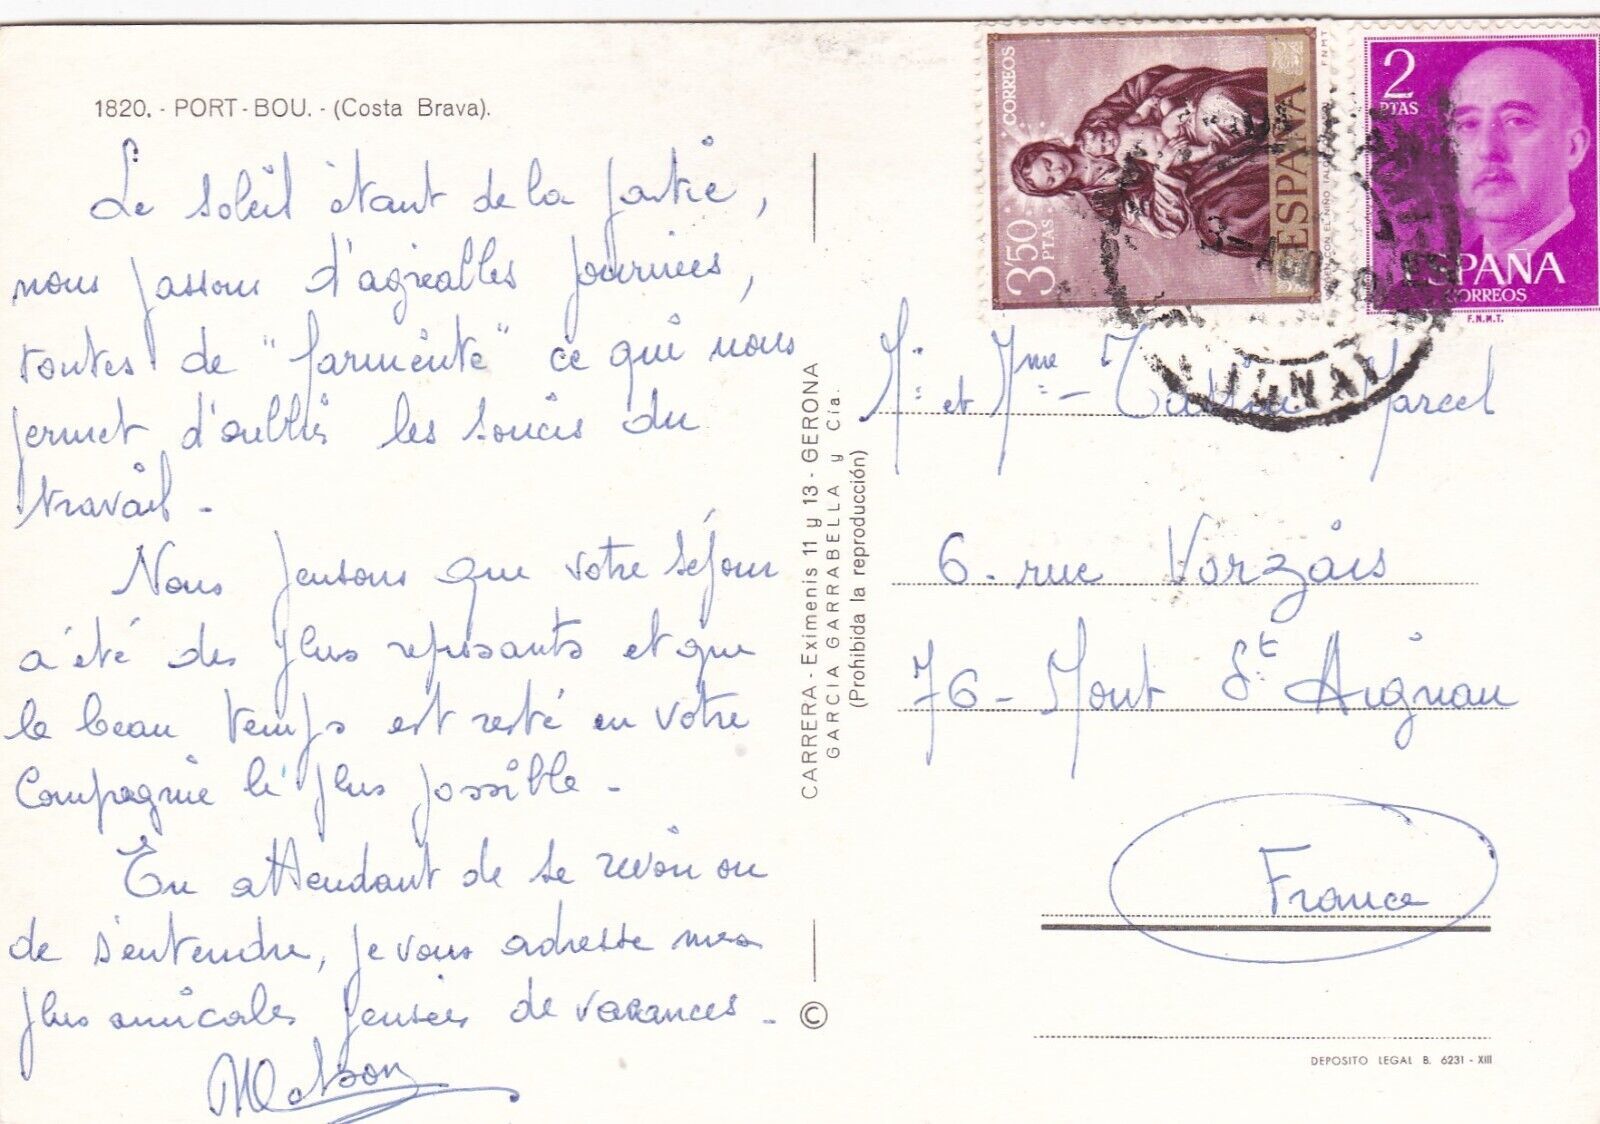 1820. - PORT - BOU. - (Costa Brava).
Le soleil étant de la partie,
nous passons d'agréables journées,
toutes de "farniente" ce qui nous
permet d'oublier les soucis du
travail.
Nous pensons que votre séjour
a été des plus reposants et que
le beau temps est resté en votre
Compagnie le plus possible.
En attendant de se revoir ou
de s'entendre, je vous adresse mes
plus amicales pensées de vacances.
CARRERA - Eximenis 11 y 13 - GERONA
GARCIA GARRABELLA y Cia.
(Prohibida la reproducción)
©
CORREOS
3'50 PTAS
ESPAÑA
F N M T
2
PTAS
ESPAÑA
CORREOS
F.N.M.T.
Mr et Mme - Marcel
6. rue Vorzais
76 - Mont St Aignan
France
DEPOSITO LEGAL B. 6231 - XIII